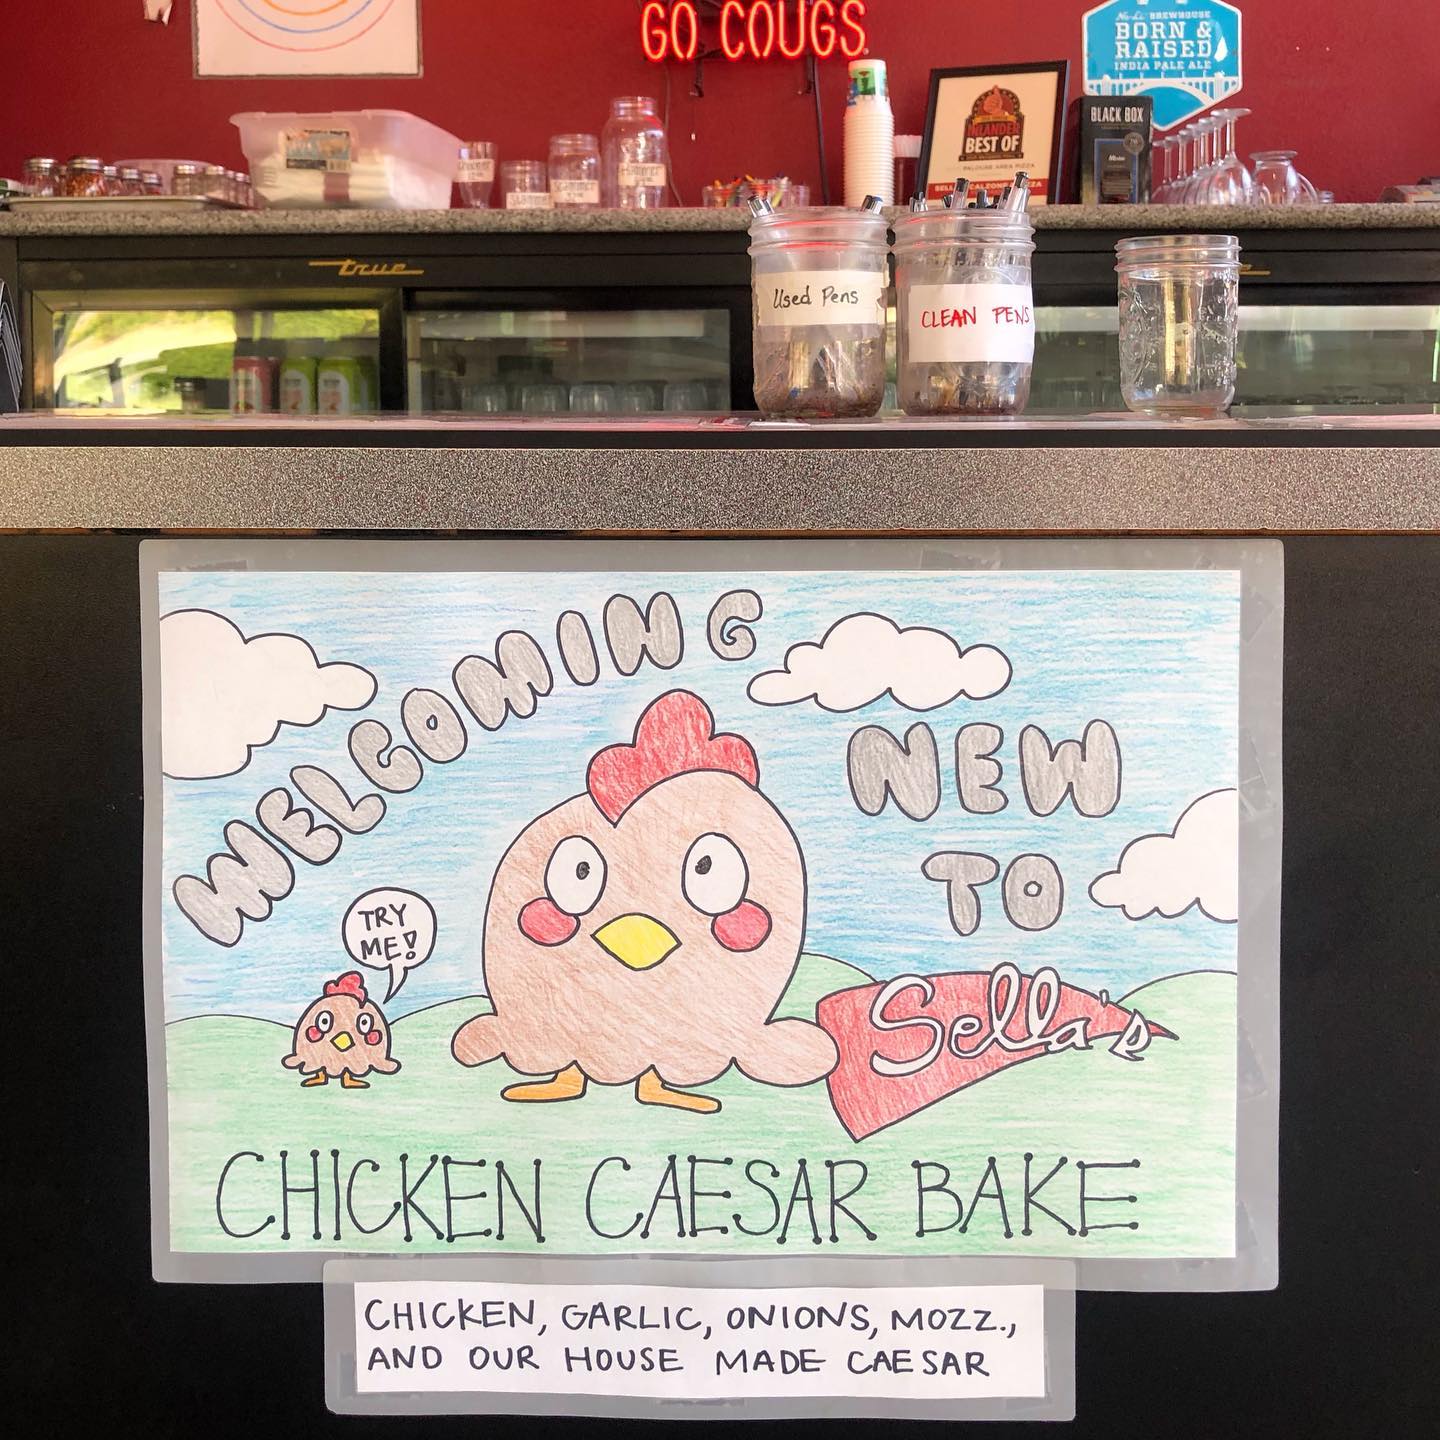 GO COUGS
No-Li BREWHOUSE
BORN &
RAISED
INDIA PALE ALE
BLACK BOX
INLANDER
BEST OF
PALOUSE AREA PIZZA
true
Used Pens
CLEAN PENS
WELCOMING
NEW
TO
TRY
ME!
Sella's
CHICKEN CAESAR BAKE
CHICKEN, GARLIC, ONIONS, MOZZ.,
AND OUR HOUSE MADE CAESAR